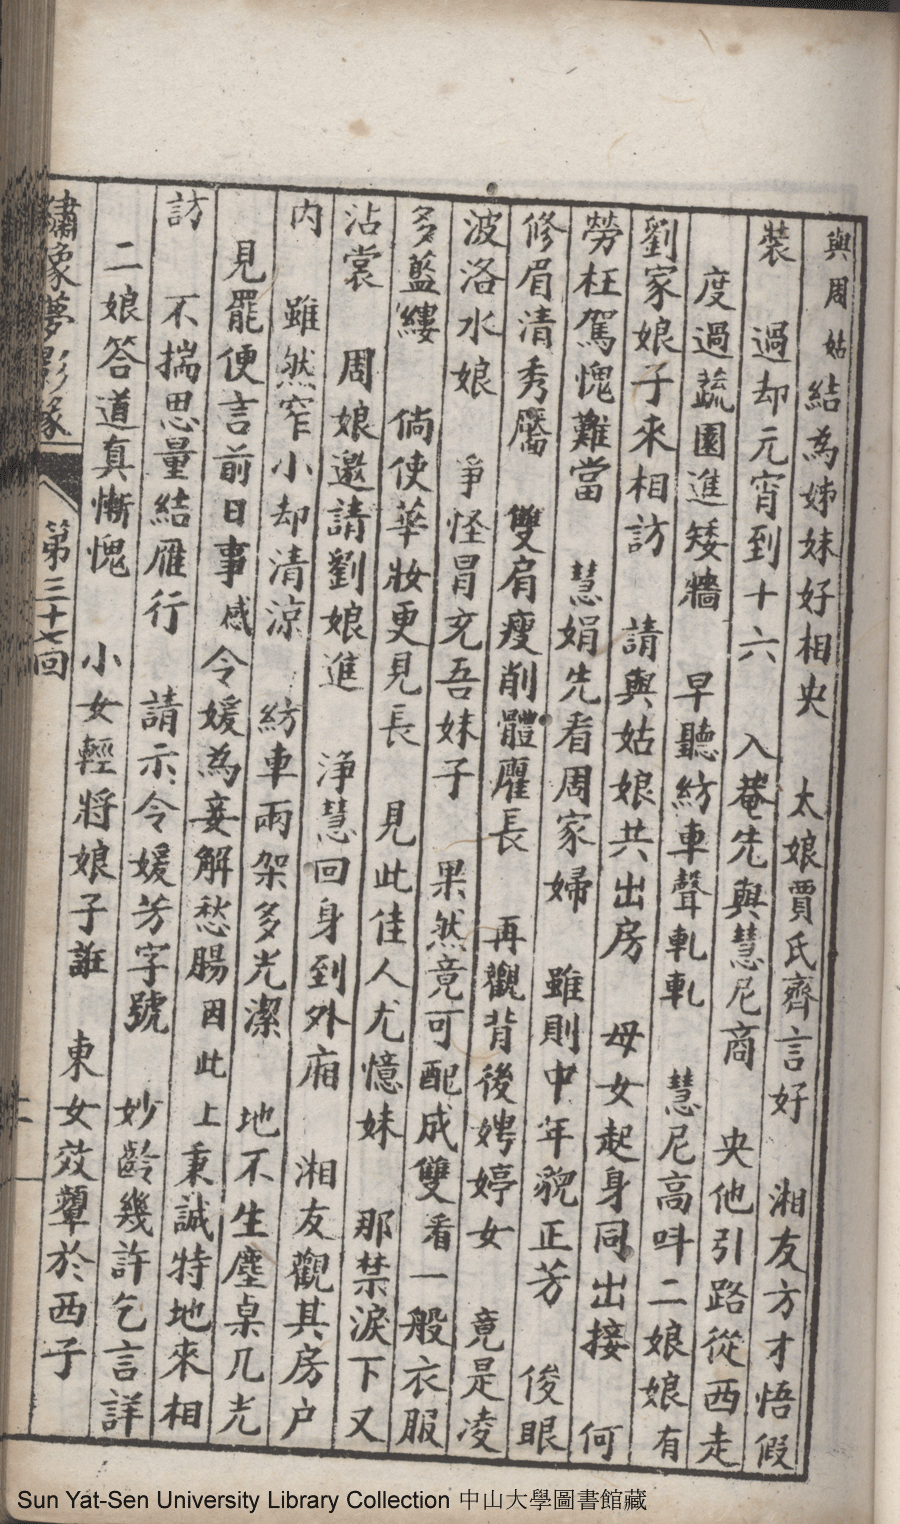 與周姑結為姊妹好相央　太娘賈氏齊言好　湘友方才悟假
裝　過却元宵到十六　入菴先與慧尼商　央他引路從西走
度過蔬園進矮牆　早聽紡車聲軋軋　慧尼高呌二娘娘有
劉家娘子來相訪　請與姑娘共出房　母女起身同出接　何
勞枉駕愧難當　慧娟先看周家婦　雖則中年貌正芳　俊眼
修眉清秀靨　雙肩瘦削體雁長　再觀背後娉婷女　竟是凌
波洛水娘　爭怪冒充吾妹子　果然竟可配成雙看一般衣服
多藍縷　倘使華妝更見長　見此佳人尤憶妹　那禁淚下又
沾裳　周娘邀請劉娘進　淨慧回身到外廂　湘友觀其房户
内　雖然窄小却清涼　紡車兩架多光潔　地不生塵桌几光
見罷便言前日事感令媛為妾解愁腸因此上秉誠特地來相
訪　不揣思量結雁行　請示令媛芳字號　妙齡幾許乞言詳
二娘答道真慚愧　小女輕將娘子誑　東女效顰於西子
繡像夢影緣
第三十七回
Sun Yat-Sen University Library Collection 中山大學圖書館藏